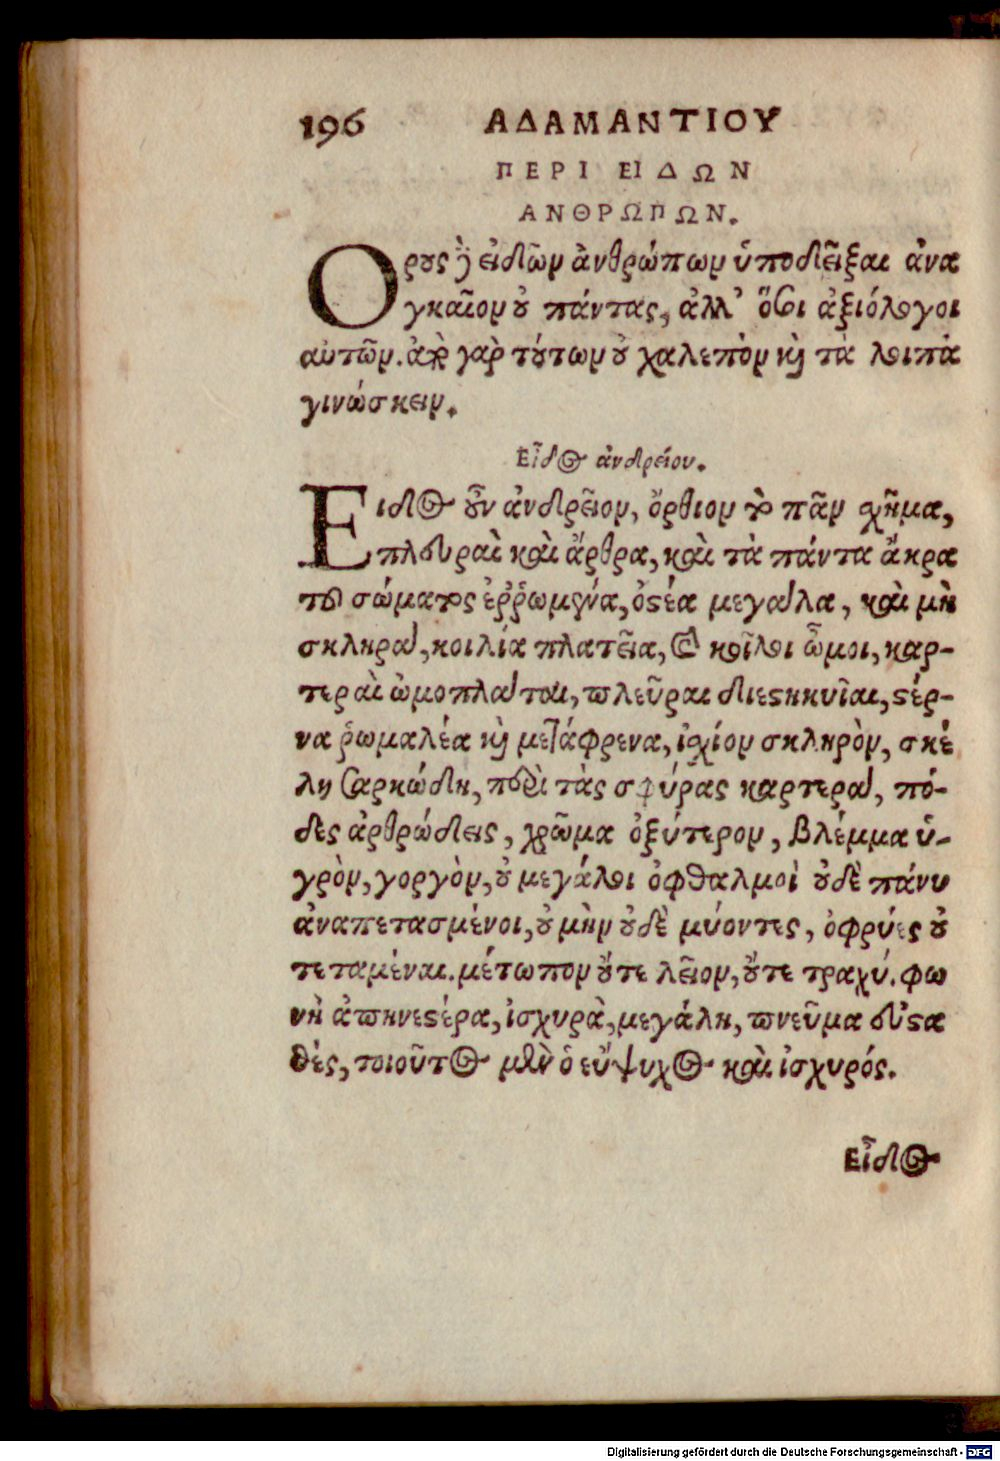 196 ΑΔΑΜΑΝΤΙΟΥ
ΠΕΡΙ ΕΙΔΩΝ
ΑΝΘΡΩΠΩΝ.
Ορους δὲ εἰδῶν ἀνθρώπων ὑποδεῖξαι ἀνα
γκαῖον οὐ πάντας, ἀλλ' ὅσοι ἀξιόλογοι
αὐτῶν. ἀπὸ γὰρ τούτων οὐ χαλεπὸν καὶ τὰ λοιπὰ
γινώσκειν.
Εἶδος ἀνδρείου.
Ειδος οὖν ἀνδρεῖον, ὄρθιον τὸ πᾶν σχῆμα,
πλευραὶ καὶ ἄρθρα, καὶ τὰ πάντα ἄκρα
τοῦ σώματος ἐῤῥωμένα, ὀστέα μεγάλα, καὶ μὴ
σκληρά, κοιλία πλατεῖα, καὶ κοῖλοι ὦμοι, καρ-
τεραὶ ὠμοπλάται, πλεῦραι διεστηκυῖαι, στέρ-
να ῥωμαλέα καὶ μετάφρενα, ἰσχίον σκληρὸν, σκέ
λη σαρκώδη, περὶ τὰς σφύρας καρτερά, πό-
δες ἀρθρώδεις, χρῶμα ὀξύτερον, βλέμμα ὑ-
γρὸν, γοργὸν, οὐ μεγάλοι ὀφθαλμοὶ οὐδὲ πάνυ
ἀναπετασμένοι, οὐ μὴν οὐδὲ μύοντες, ὀφρύες οὐ
τεταμέναι. μέτωπον οὔτε λεῖον, οὔτε τραχύ. φω
νὴ ἀπηνεστέρα, ἰσχυρὰ, μεγάλη, πνεῦμα εὐστα
θὲς, τοιοῦτος μὲν ὁ εὔψυχος καὶ ἰσχυρός.
Εἶδος
Digitalisierung gefördert durch die Deutsche Forschungsgemeinschaft - DFG